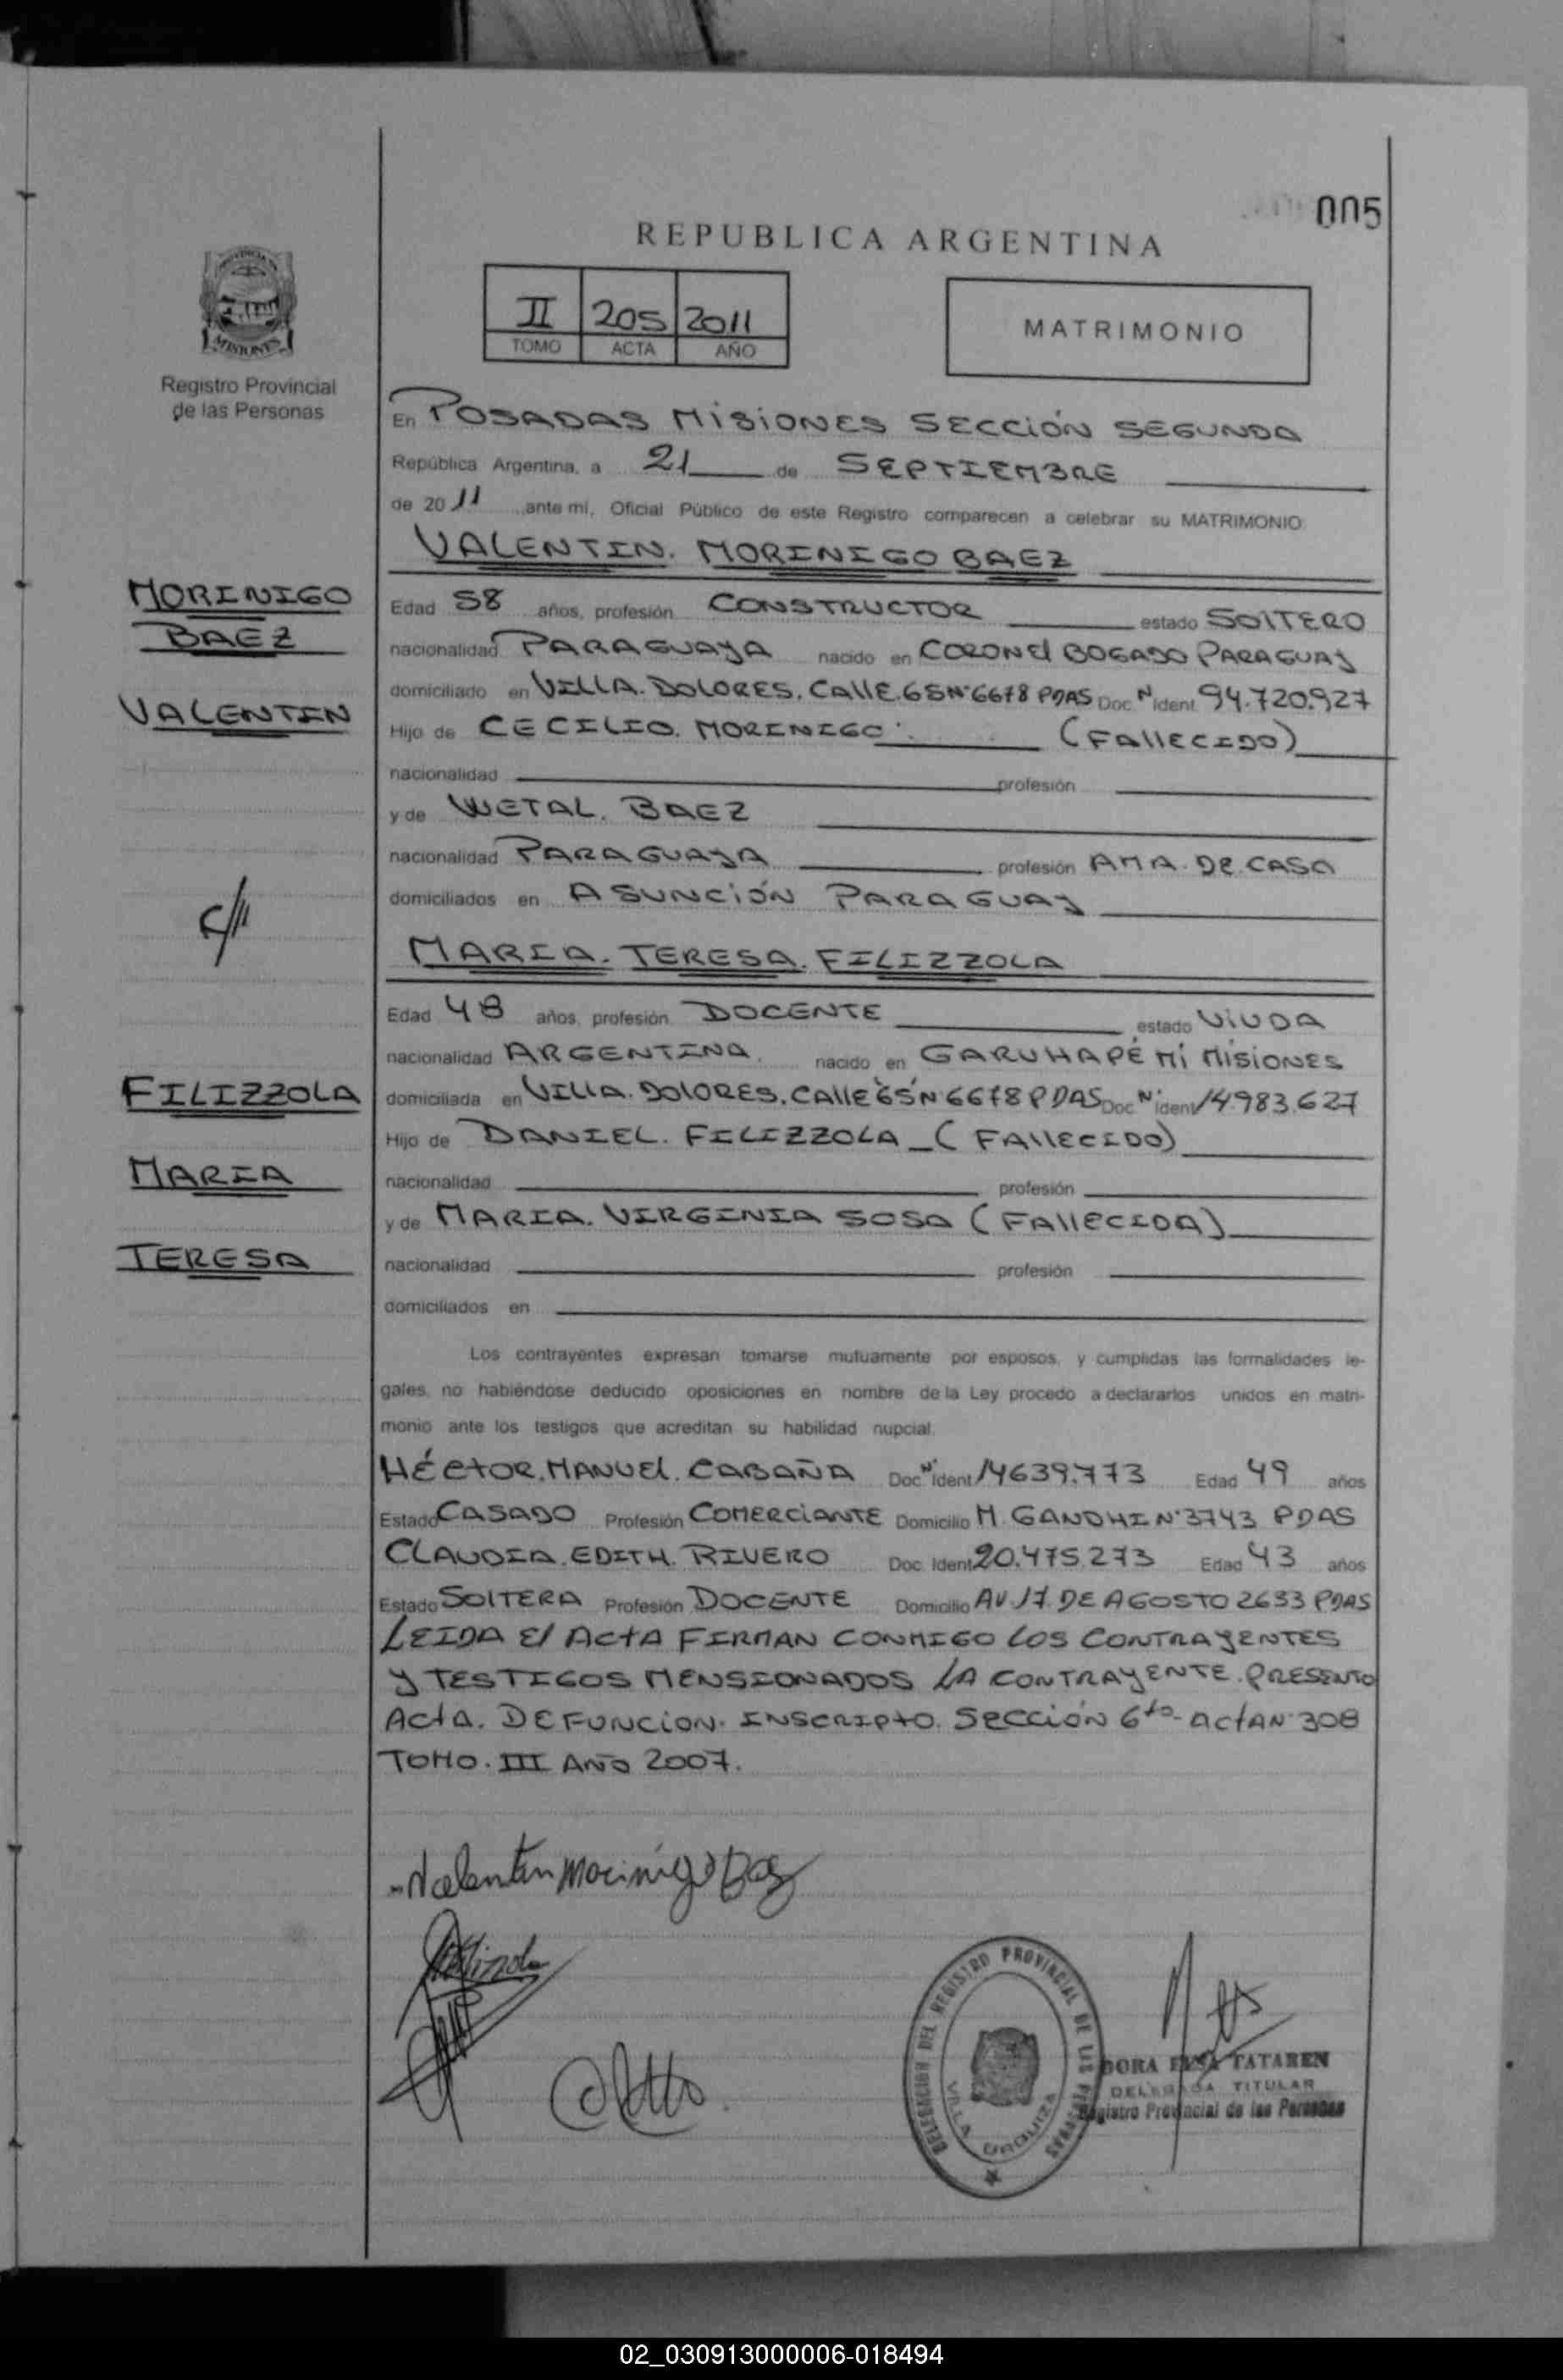 005
REPUBLICA ARGENTINA
PROVINCIA DE
MISIONES
Registro Provincial
de las Personas
II 205 2011
TOMO ACTA AÑO
MATRIMONIO
En POSADAS MISIONES SECCIÓN SEGUNDA
República Argentina, a 21 de SEPTIEMBRE
de 2011 ante mi, Oficial Público de este Registro comparecen a celebrar su MATRIMONIO:
VALENTIN. MORINIGO BAEZ
MORINIGO
BAEZ
VALENTIN
Edad 58 años, profesión CONSTRUCTOR estado SOLTERO
nacionalidad PARAGUAYA nacido en CORONEL BOGADO PARAGUAY
domiciliado en VILLA. DOLORES. CALLE 65 Nº 6678 PDAS Doc Nº Ident 94.720.927
Hijo de CECILIO. MORINIGO. (FALLECIDO)
nacionalidad profesión
y de WETAL. BAEZ
nacionalidad PARAGUAYA profesión AMA. DE. CASA
domiciliados en ASUNCIÓN PARAGUAY
MARIA. TERESA. FILIZZOLA
Edad 48 años, profesión DOCENTE estado VIUDA
nacionalidad ARGENTINA. nacido en GARUHAPÉ MÍ MISIONES
FILIZZOLA
MARIA
TERESA
domiciliada en VILLA. DOLORES. CALLE 65 Nº 6678 PDAS Doc Nº Ident 14.983.627
Hijo de DANIEL. FILIZZOLA (FALLECIDO)
nacionalidad profesión
y de MARIA. VIRGINIA SOSA (FALLECIDA)
nacionalidad profesión
domiciliados en
Los contrayentes expresan tomarse mutuamente por esposos, y cumplidas las formalidades le-
gales, no habiéndose deducido oposiciones en nombre de la Ley procedo a declararlos unidos en matri-
monio ante los testigos que acreditan su habilidad nupcial.
HÉCTOR. MANUEL. CABAÑA Doc Nº Ident 14639.773 Edad 49 años
Estado CASADO Profesión COMERCIANTE Domicilio M. GANDHI Nº 3743 PDAS
CLAUDIA. EDITH. RIVERO Doc. Ident 20.475.273 Edad 43 años
Estado SOLTERA Profesión DOCENTE Domicilio AV 17 DE AGOSTO 2633 PDAS
LEIDA EL ACTA FIRMAN CONMIGO LOS CONTRAYENTES
Y TESTIGOS MENSIONADOS LA CONTRAYENTE. PRESENTO
ACTA. DEFUNCION. INSCRIPTO. SECCIÓN 6ta- ACTA Nº 308
TOMO. III AÑO 2007.
Valentin Morinigo Baez
DELEGACION DEL REGISTRO PROVINCIAL DE LAS PERSONAS
VILLA URQUIZA
TATAREN
DELEGADA TITULAR
Registro Provincial de las Personas
02_030913000006-018494